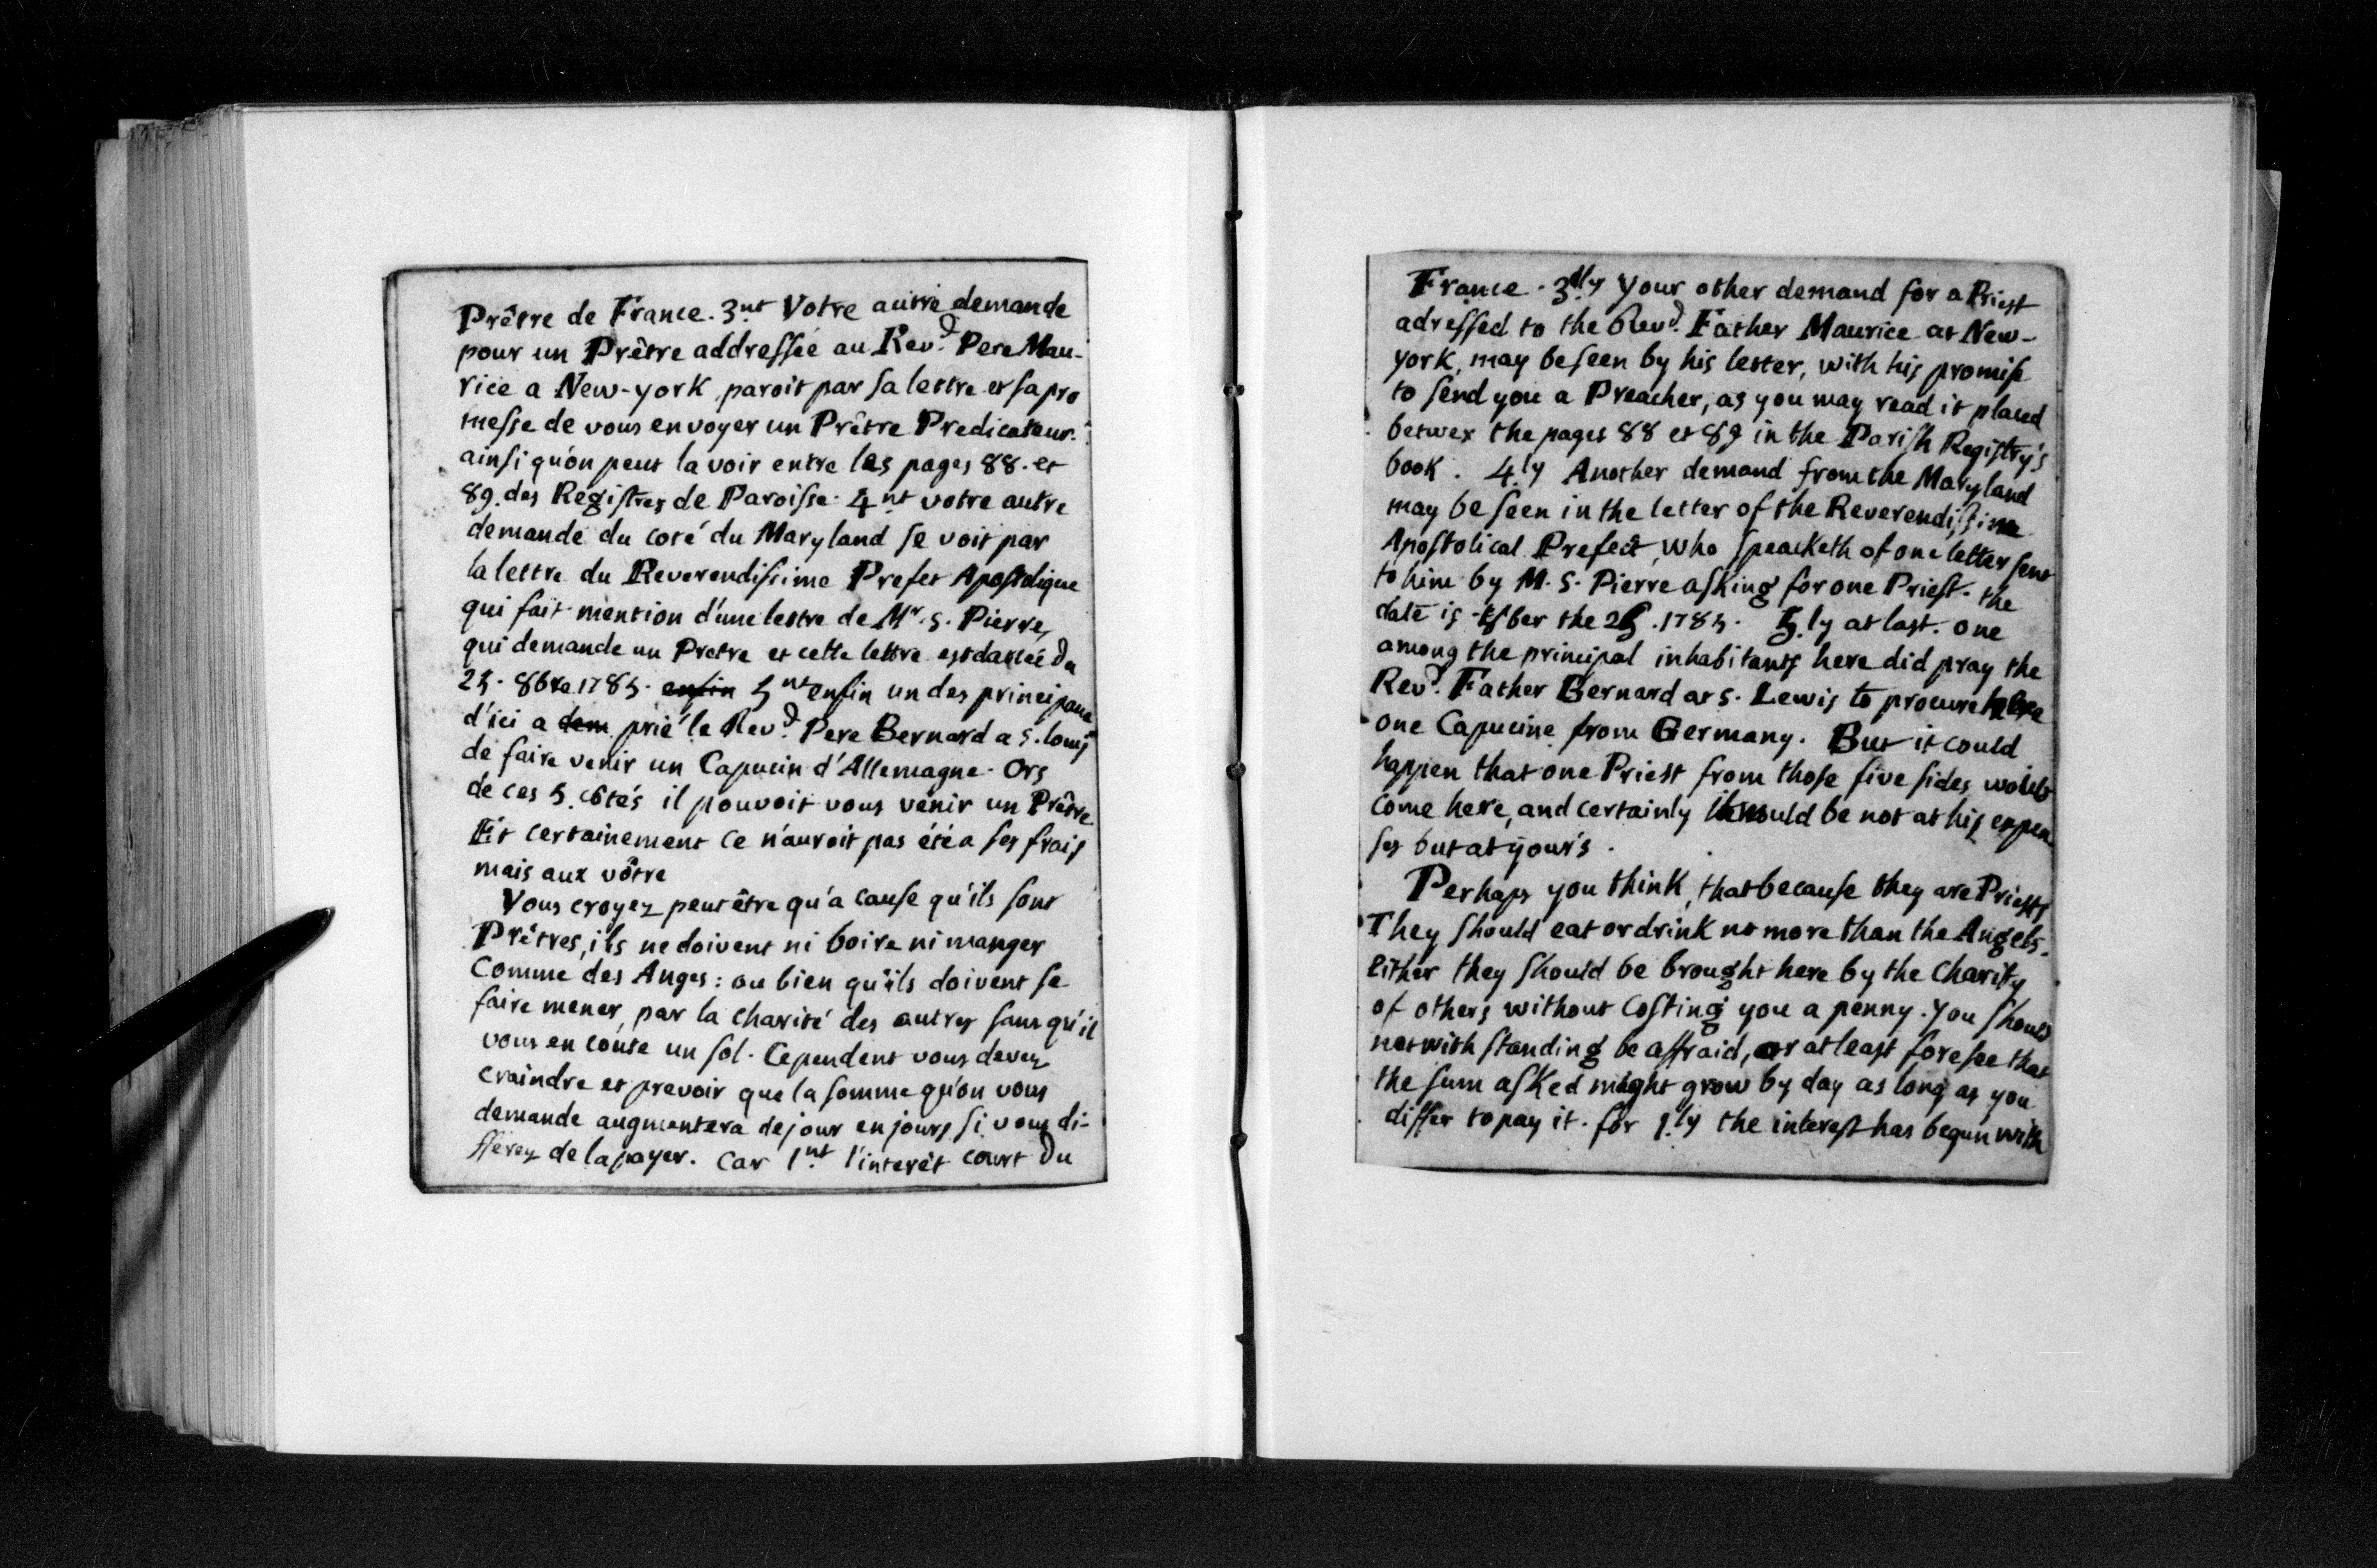 Prêtre de France. 3nt Votre autre demande
pour un Prêtre addressée au Revd. Pere Mau-
rice a New-york, paroit par sa lettre et sa pro
messe de vous envoyer un Prêtre Predicateur.
ainsi qu'on peut la voir entre les pages 88. et
89. des Registres de Paroisse. 4nt votre autre
demande du coté du Maryland se voit par
la lettre du Reverendissime Prefet Apostolique
qui fait mention d'une lettre de Mr. S. Pierre,
qui demande un Pretre et cette lettre est dattée du
25. 8bre 1785. enfin 5nt enfin un des principaux
d'ici a dem prié le Revd. Pere Bernard a S. louis
de faire venir un Capucin d'Allemagne. Ors
de ces 5. côtés il pouvoit vous venir un Prêtre
Et certainement ce n'auroit pas été a ses frais
mais aux vôtre
Vous croyez peut être qu'a cause qu'ils sont
Prêtres, ils ne doivent ni boire ni manger
Comme des Anges: ou bien qu'ils doivent se
faire mener, par la charité des autres sans qu'il
vous en coute un sol. Cependent vous devez
craindre et prevoir que la somme qu'on vous
demande augmentera de jour en jours si vous di-
fferez de la payer. Car 1nt l'interêt court du
France. 3dly your other demand for a Priest
adressed to the Revd. Father Maurice at New-
york, may be seen by his letter, with his promise
to send you a Preacher, as you may read it placed
betwex the pages 88 et 89 in the Parish Registry's
book. 4.ly Another demand from the Maryland
may be seen in the letter of the Reverendissime
Apostolical Prefect, who speacketh of one letter sent
to him by M. S. Pierre asking for one Priest. the
date is 8ber the 25. 1785. 5.ly at last. one
among the principal inhabitants here did pray the
Revd. Father Bernard at S. Lewis to procure here
one Capucine from Germany. But it could
happen that one Priest from those five sides would
come here, and certainly it would be not at his expen
ses but at your's.
Perhaps you think, that because they are Priests
They should eat or drink no more than the Angels.
Either they should be brought here by the Charity
of others without Costing you a penny. You should
notwithstanding be affraid, or at least foresee that
the sum asked might grow by day as long as you
differ to pay it. for 1.ly the interest has begun with